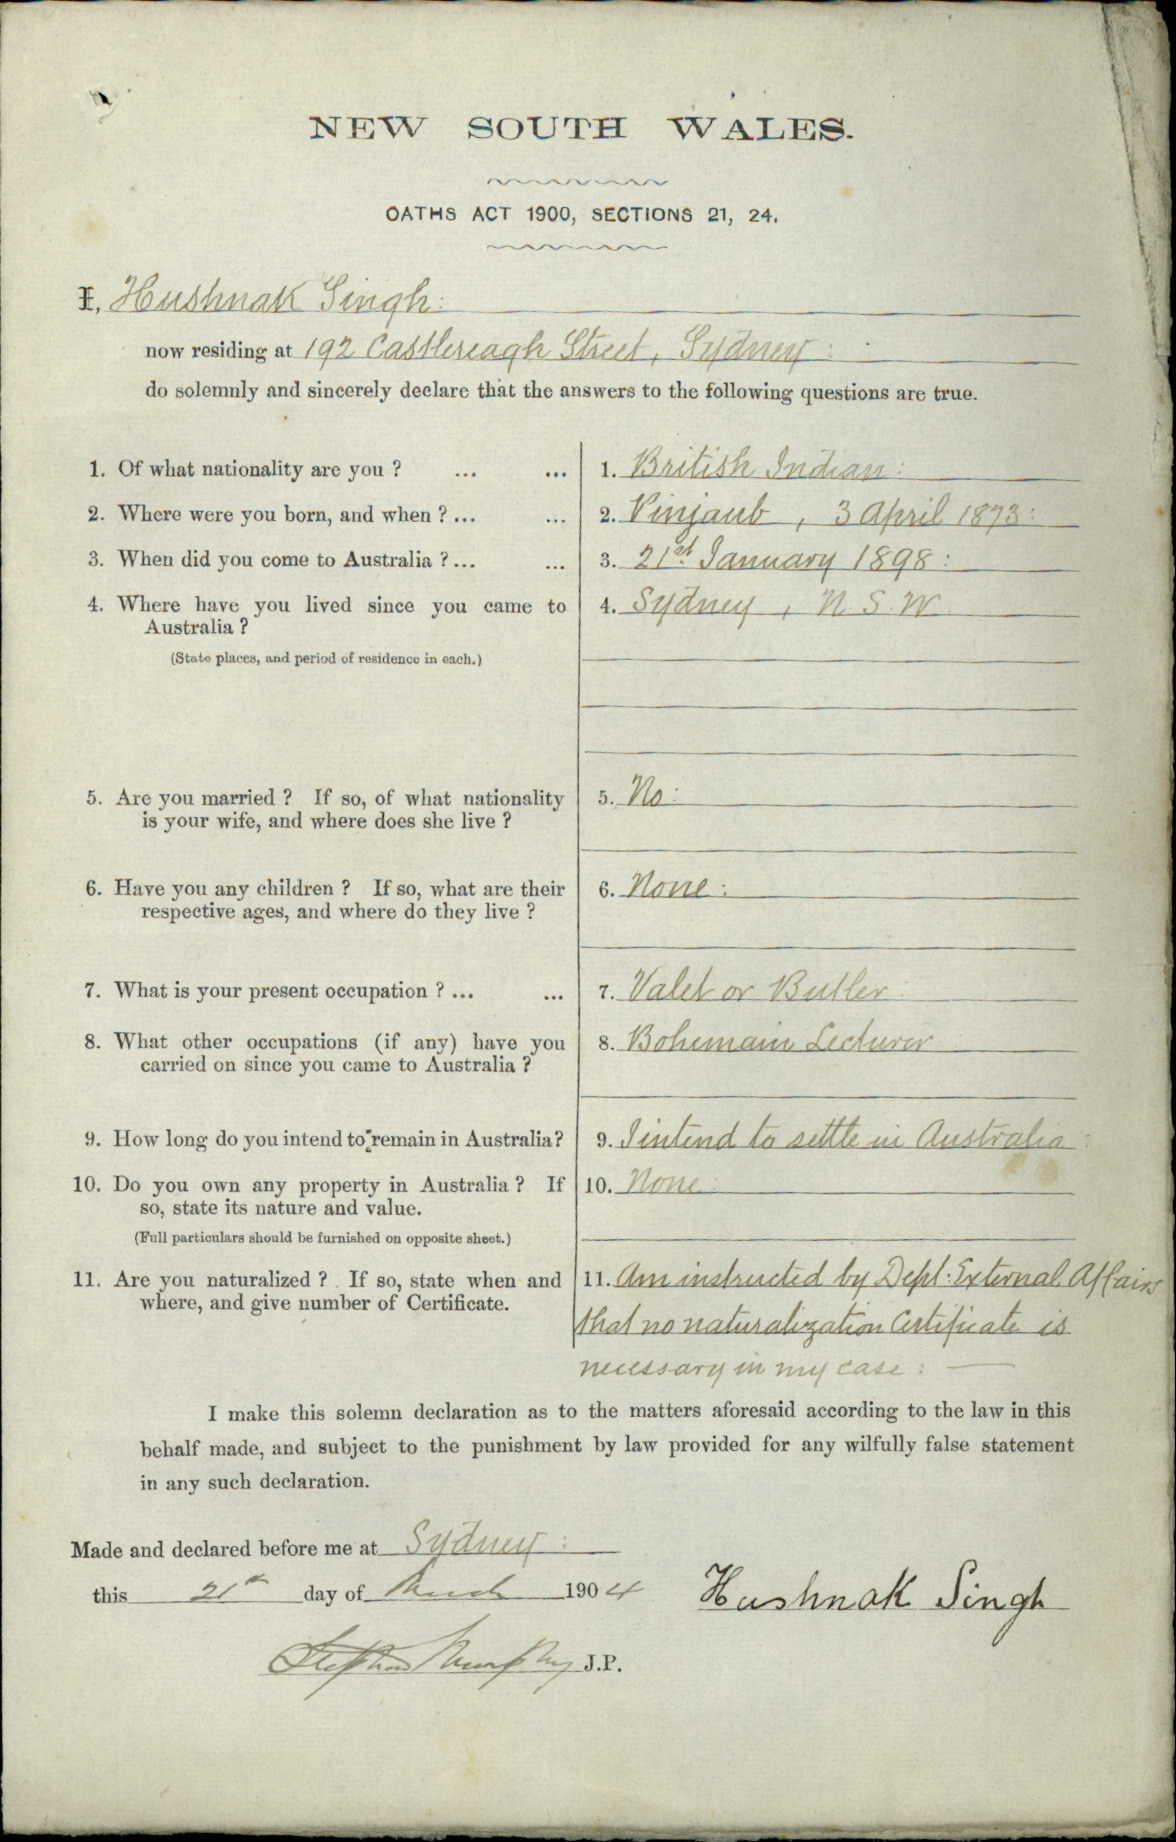 NEW SOUTH WALES.
OATHS ACT 1900, SECTIONS 21, 24.
I, Hushnak Singh:
now residing at 192 Castlereagh Street, Sydney:
do solemnly and sincerely declare that the answers to the following questions are true.
1. Of what nationality are you ? ... ... 1. British Indian:
2. Where were you born, and when ? ... ... 2. Pinjaub, 3 April 1873:
3. When did you come to Australia ? ... ... 3. 21st January 1898:
4. Where have you lived since you came to 4. Sydney, N S W
Australia ?
(State places, and period of residence in each.)
5. Are you married ? If so, of what nationality 5. No:
is your wife, and where does she live ?
6. Have you any children ? If so, what are their 6. None:
respective ages, and where do they live ?
7. What is your present occupation ? ... ... 7. Valet or Butler
8. What other occupations (if any) have you 8. Bohemain Lecturer
carried on since you came to Australia ?
9. How long do you intend to remain in Australia? 9. I intend to settle in Australia:
10. Do you own any property in Australia ? If 10. None:
so, state its nature and value.
(Full particulars should be furnished on opposite sheet.)
11. Are you naturalized ? If so, state when and 11. Am instructed by Dept: External Affairs
where, and give number of Certificate. that no naturalization Certificate is
necessary in my case: —
I make this solemn declaration as to the matters aforesaid according to the law in this
behalf made, and subject to the punishment by law provided for any wilfully false statement
in any such declaration.
Made and declared before me at Sydney:
this 21st day of March 1904 Hushnak Singh
Stephen Murphy J.P.